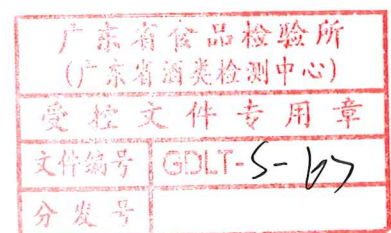 广东省食品检验所
(广东省酒类检测中心)
受控文件专用章
文件编号 GDLT-S-67
分发号